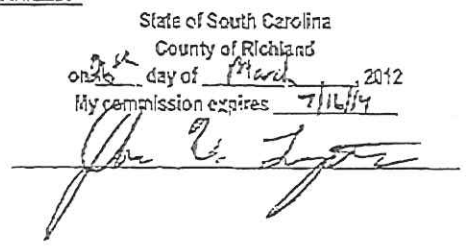 State of South Carolina
County of Richland
on 26th day of March, 2012
My commission expires 7/16/14